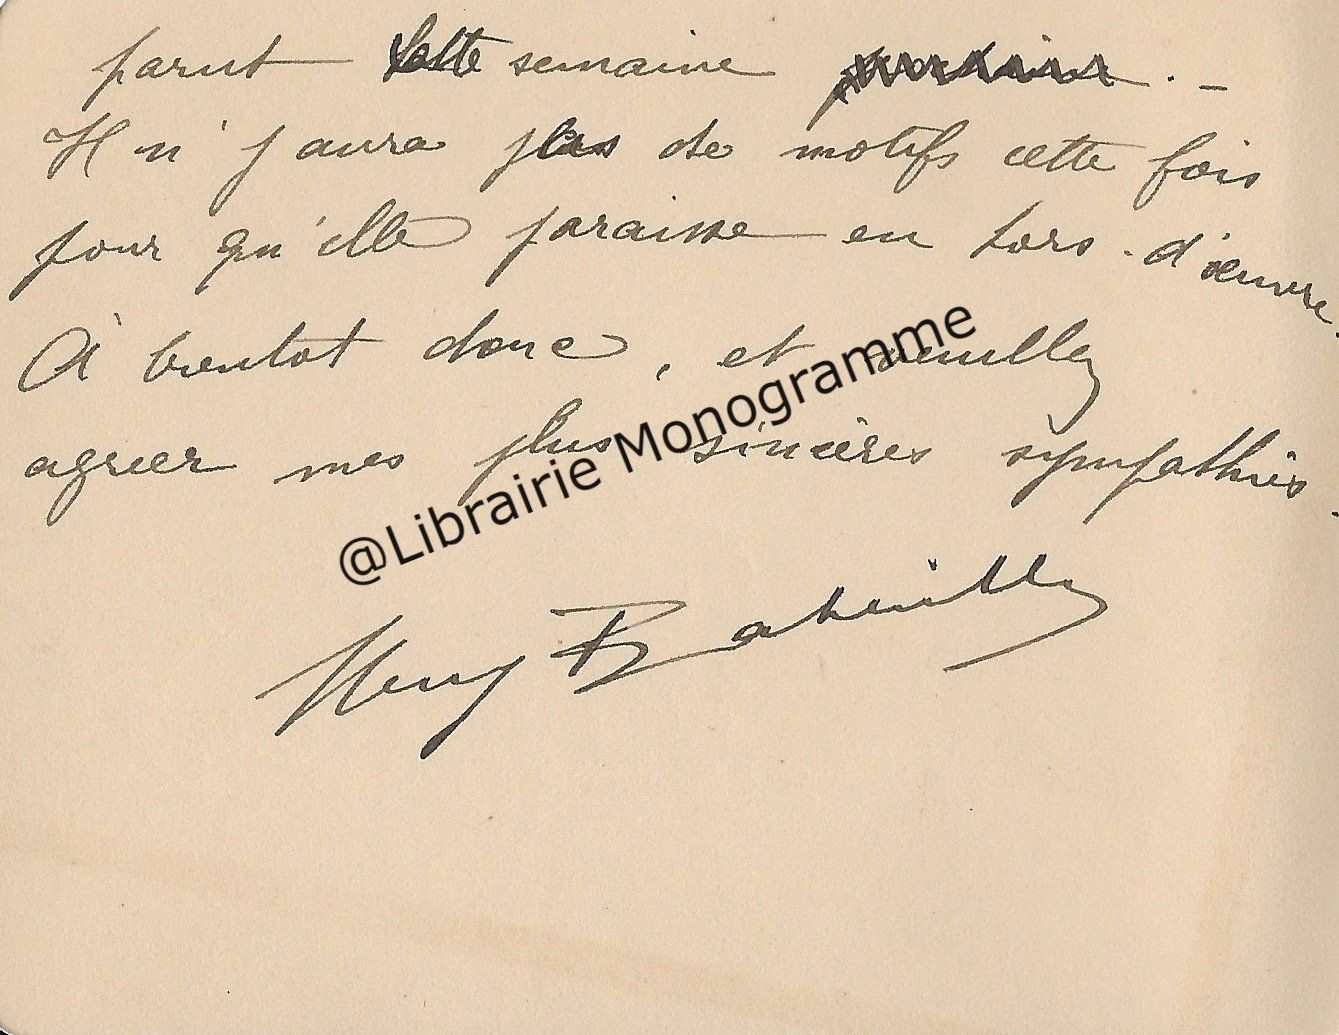 parut cette semaine
Il n'y aura plus de motifs cette fois
pour qu'elle paraisse en hors-d'œuvre.
À bientot donc, et veuillez
agréer mes plus sincères sympathies.
@Librairie Monogramme
Henry Bataille